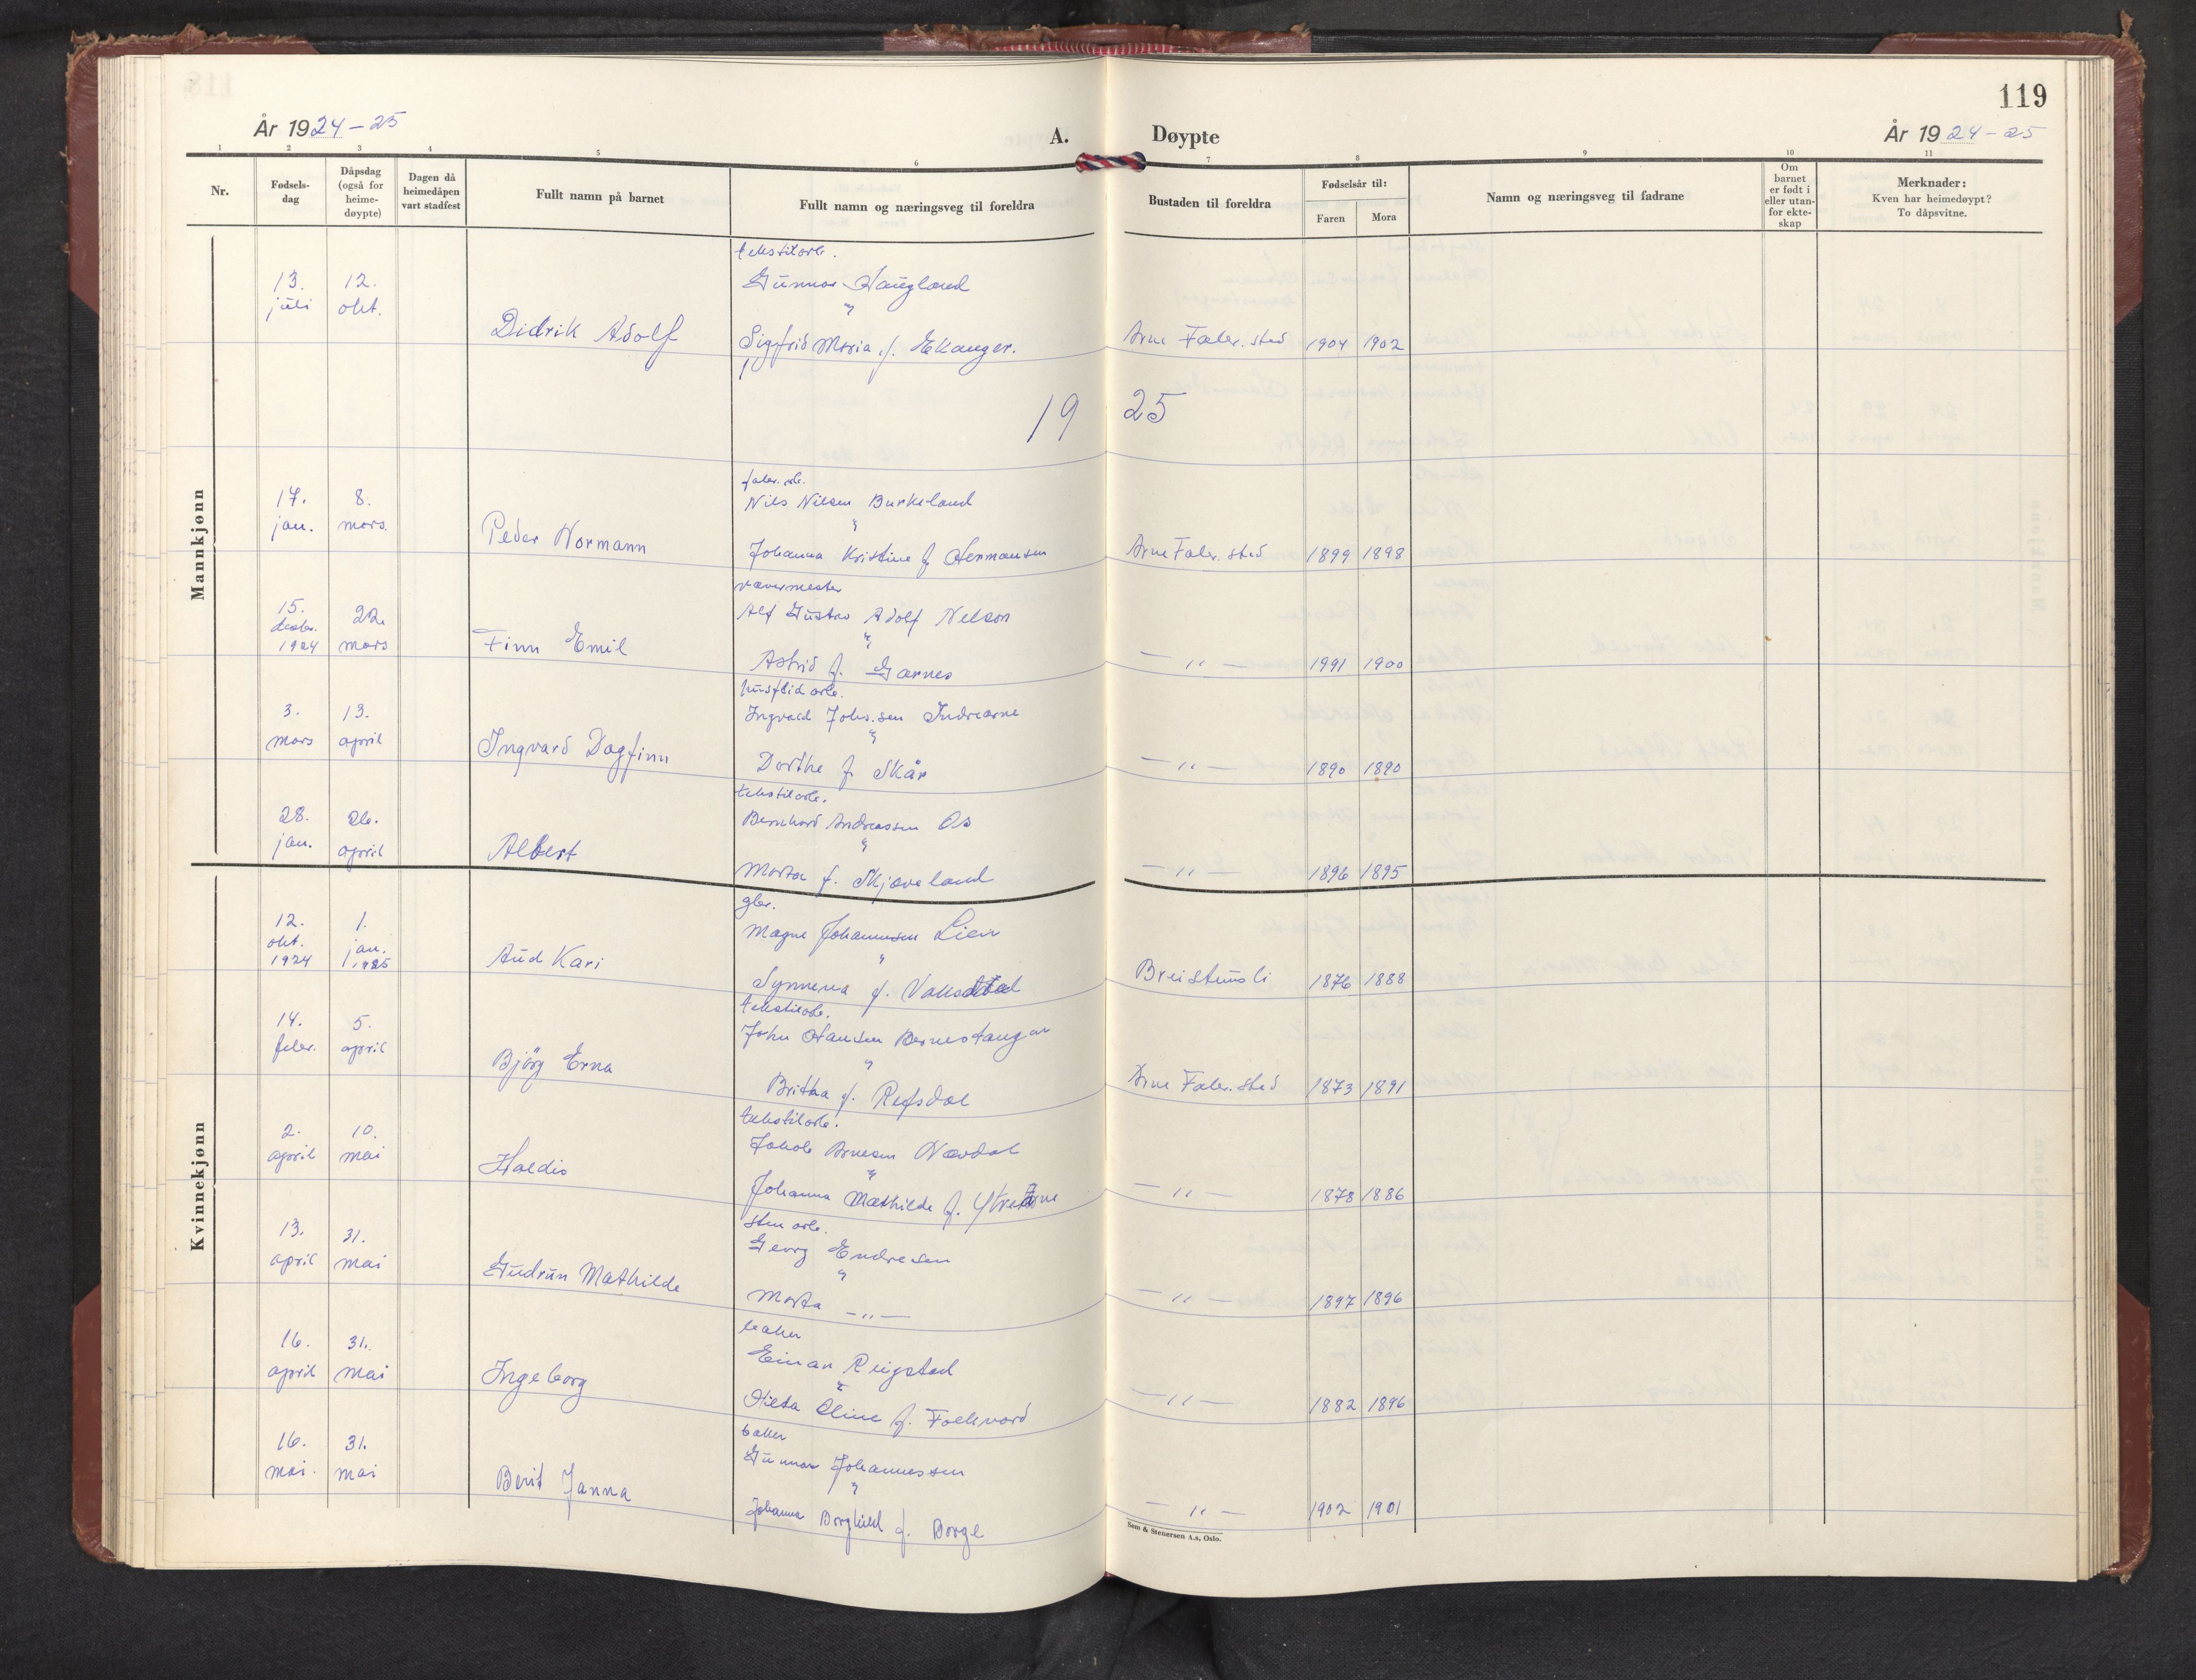 119
År 1924-25
A.
Døypte
År 1924-25
1 2 3 4 5 6 7 8 9 10 11
Nr.
Fødsels-
dag
Dåpsdag
(også for
heime-
døypte)
Dagen då
heimedåpen
vart stadfest
Fullt namn på barnet
Fullt namn og næringsveg til foreldra
Bustaden til foreldra
Fødselsår til:
Faren Mora
Namn og næringsveg til fadrane
Om
barnet
er født i
eller utan-
for ekte-
skap
Merknader:
Kven har heimedøypt?
To dåpsvitne.
Mannkjønn
tekstilarb.
13. 12. Gunnar Haugland
juli okt. "
Didrik Adolf Sigfrid Maria f. Ekanger. Arne Fabr. sted 1904 1902
19 25
fabr. arb.
17. 8. Nils Nilsen Burkeland
jan. mars. "
Peder Normann Johanna Kristine f. Hermansen Arne Fabr. sted 1899 1898
vævermester
15. 22. Alf Gustav Adolf Nelson
desbr. "
1924 mars Finn Emil Astrid f. Garnes — " — 1991 1900
husflid arb.
3. 13. Ingvald Johs.sen Indrearne
mars april "
Ingvard Dagfinn Dorthe f. Skår — " — 1890 1890
tekstilarb.
28. 26. Bernhard Andreassen Os
jan. april "
Albert Marta f. Skjaveland — " — 1896 1895
Kvinnekjønn
gbr.
12. 1. Magne Johannesen Lien
okt. jan. "
1924 1925 Aud Kari Synneva f. Vaksdal Breistunsli 1876 1888
tekstilarb.
14. 5. John Hansen Bernestangen
febr. april "
Bjørg Erna Britha f. Refsdal Arne Fabr. sted 1873 1891
tekstilarb.
2. 10. Jakob Arnesen Nævdal
april mai "
Haldis Johanna Mathilde f. Ytre Arne — " — 1878 1886
sten arb.
13. 31. Georg Endresen
april mai "
Gudrun Mathilde Marta — " — — " — 1897 1896
baker
16. 31. Einar Reigstad
april mai "
Ingeborg Hilda Oline f. Folkvord — " — 1882 1896
baker
16. 31. Gunnar Johannessen
mai. mai "
Berit Janna Johanna Borghild f. Borge — " — 1902 1901
Sem & Stenersen A.s, Oslo.